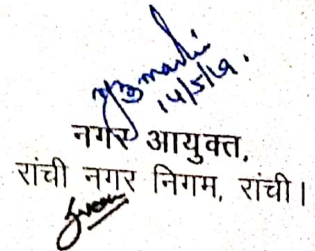 14/5/19.
नगर आयुक्त,
रांची नगर निगम, रांची।